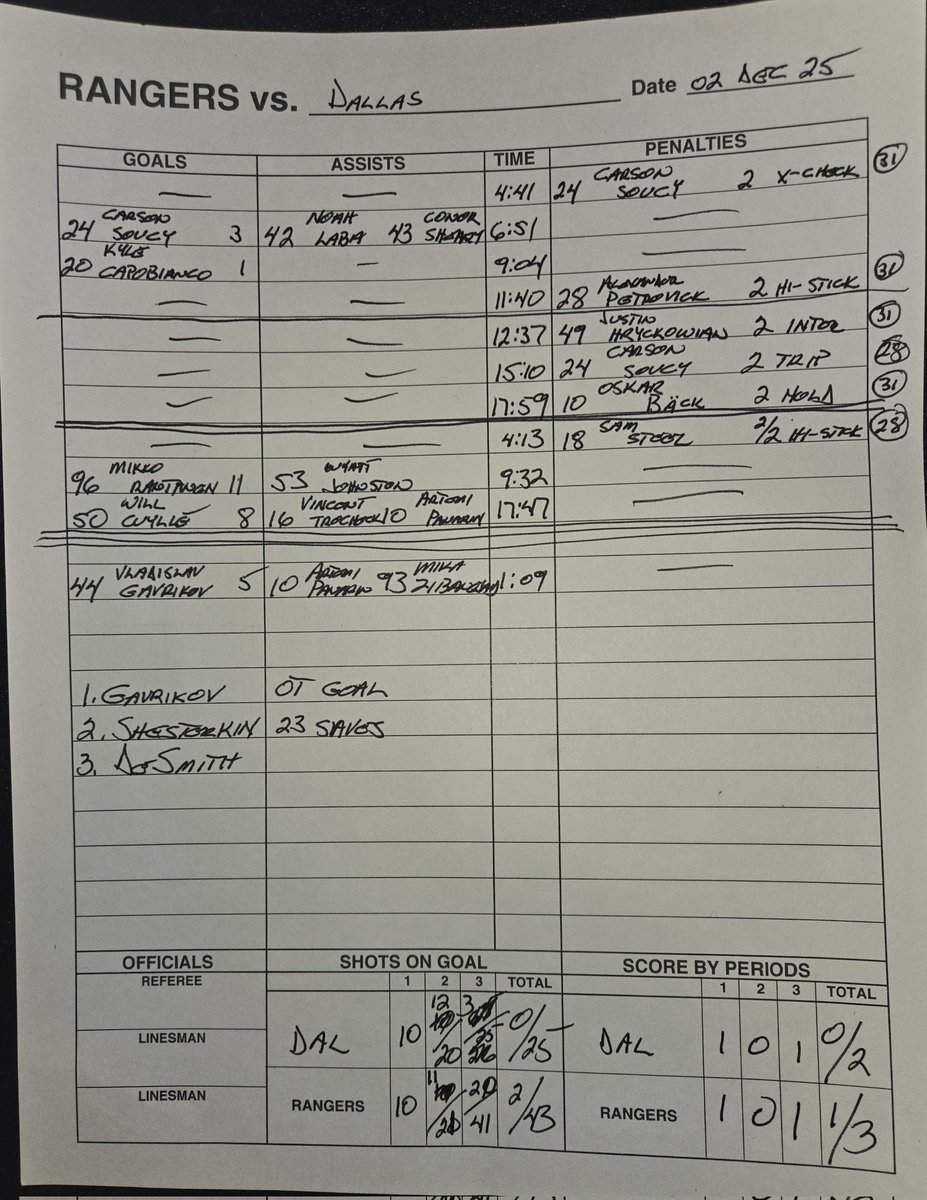 RANGERS vs. DALLAS Date 02 DEC 25
GOALS ASSISTS TIME PENALTIES
— — 4:41 24 CARSON SOUCY 2 X-CHECK 31
24 CARSON SOUCY 3 42 NOAH LABA 43 CONOR SHEARY 6:51 —
20 KYLE CAPOBIANCO 1 — 9:04 —
— — 11:40 28 ALEXANDER PETROVICK 2 HI-STICK 31
— — 12:37 49 JUSTIN HRYCKOWIAN 2 INTER 31
— — 15:10 24 CARSON SOUCY 2 TRIP 28
— — 17:59 10 OSKAR BÄCK 2 HOLD 31
— — 4:13 18 SAM STEEL 2/2 HI-STICK 28
96 MIKKO RANTANEN 11 53 WYATT JOHNSTON 9:32 —
50 WILL CUYLLE 8 16 VINCENT TROCHECK 10 ARTEMI PANARIN 17:47 —
44 VLADISLAV GAVRIKOV 5 10 ARTEMI PANARIN 93 MIKA ZIBANEJAD 1:09 —
1. GAVRIKOV OT GOAL
2. SHESTERKIN 23 SAVES
3. DESMITH
OFFICIALS SHOTS ON GOAL SCORE BY PERIODS
REFEREE 1 2 3 TOTAL 1 2 3 TOTAL
LINESMAN DAL 10 12/20 3/25 0/25 DAL 1 0 1 0/2
LINESMAN RANGERS 10 11/21 20/41 2/43 RANGERS 1 0 1 1/3